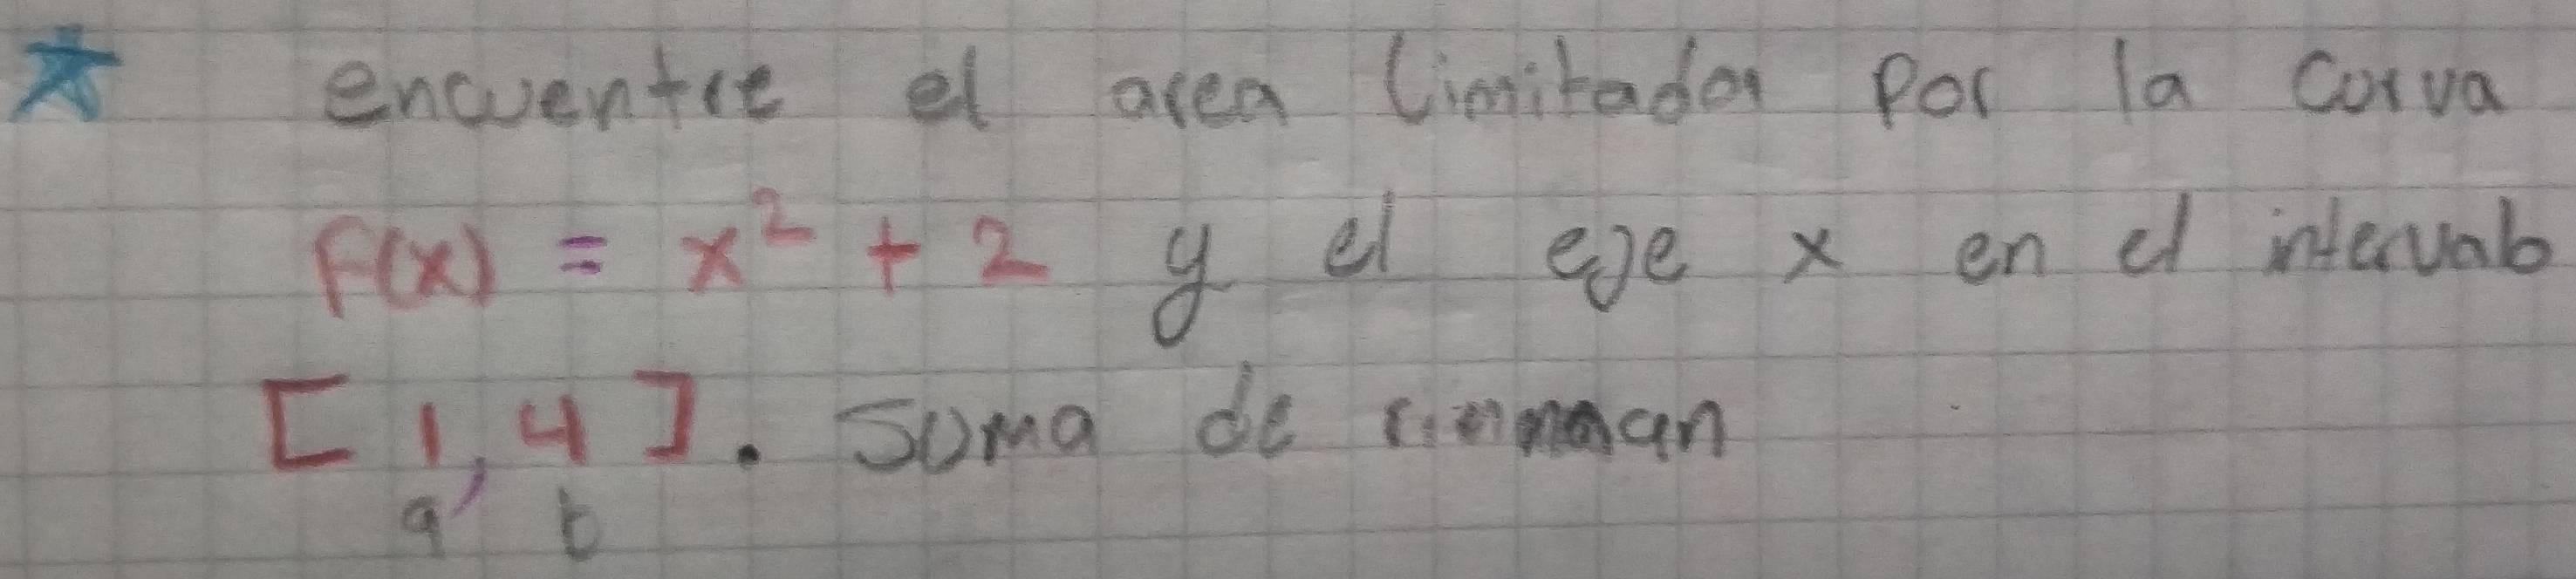 encuentre el area limitados por la curva
f(x) = x² + 2 y el eje x en el intervalo
[1, 4]. Suma de rimman
a b